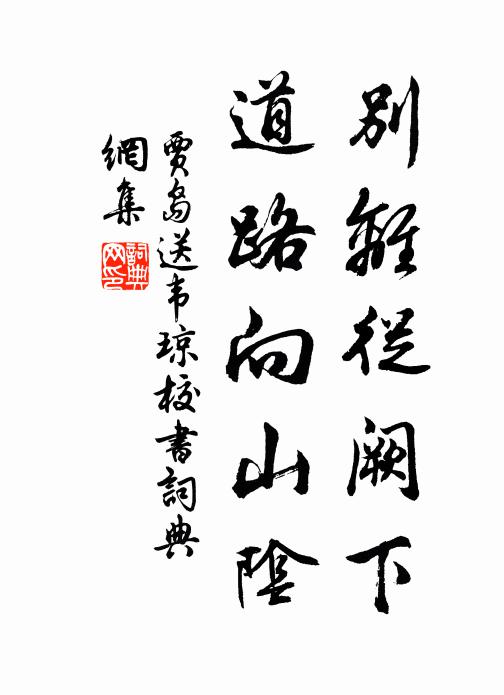 別離從闕下
道路向山陰
賈島送韦琼校書詞典
網集
詞典网印